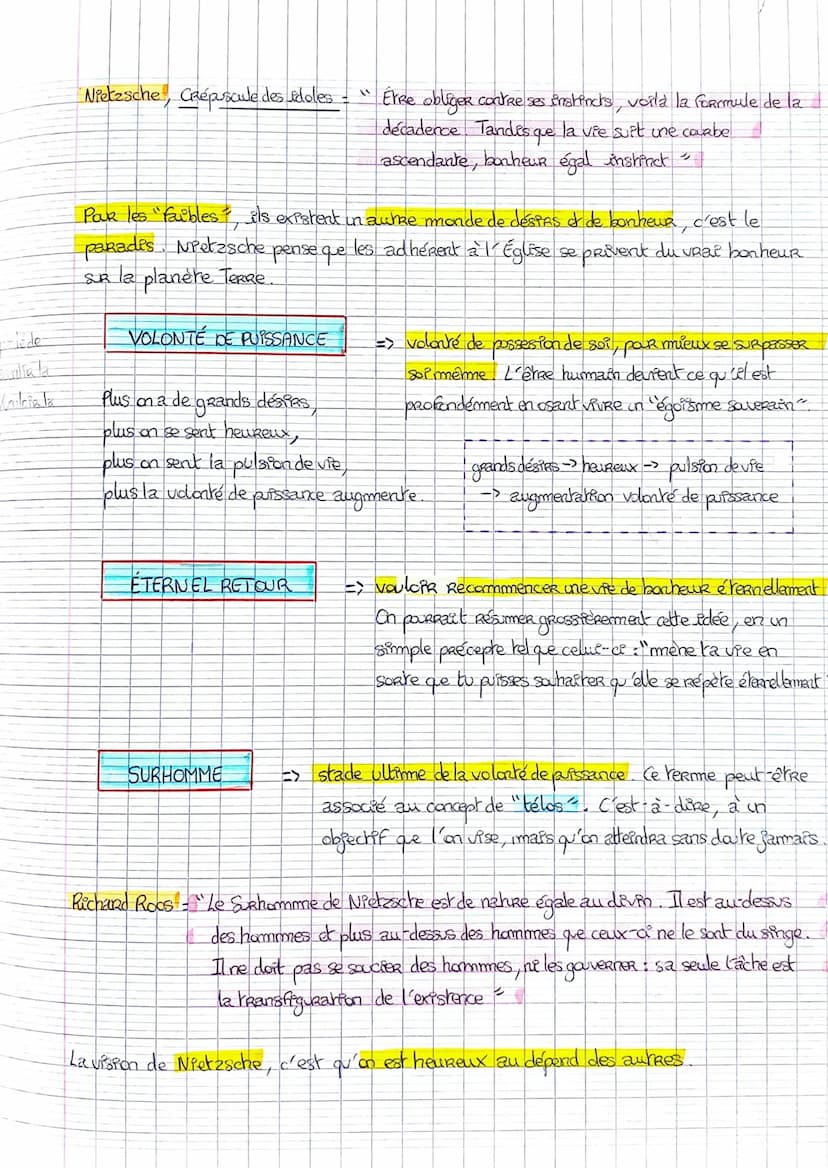 Nietzsche, Crépuscule des idoles = " Être obliger contre ses instincts, voilà la formule de la
décadence. Tandis que la vie suit une courbe
ascendante, bonheur égal instinct "
Pour les "faibles", ils existent un autre monde de désirs et de bonheur, c'est le
paradis. Nietzsche pense que les adhérent à l'Église se privent du vrai bonheur
sur la planète Terre.
VOLONTÉ DE PUISSANCE => volonté de possession de soi, pour mieux se surpasser
soi même. L'être humain devient ce qu'il est
profondément en osant vivre un "égoïsme souverain".
Plus on a de grands désirs,
plus on se sent heureux,
plus on sent la pulsion de vie,
plus la volonté de puissance augmente.
grands désirs -> heureux -> pulsion de vie
-> augmentation volonté de puissance
ÉTERNEL RETOUR => vouloir recommencer une vie de bonheur éternellement
On pourrait résumer grossièrement cette idée, en un
simple précepte tel que celui-ci : "mène ta vie en
sorte que tu puisses souhaiter qu'elle se répète éternellement
SURHOMME => stade ultime de la volonté de puissance. Ce terme peut-être
associé au concept de "télos". C'est-à-dire, à un
objectif que l'on vise, mais qu'on atteindra sans doute jamais.
Richard Roos = "Le Surhomme de Nietzsche est de nature égale au divin. Il est au-dessus
des hommes et plus au-dessus des hommes que ceux-ci ne le sont du singe.
Il ne doit pas se soucier des hommes, ni les gouverner : sa seule tâche est
la transfiguration de l'existence "
La vision de Nietzsche, c'est qu'on est heureux au dépend des autres.